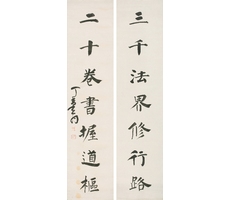 三千法界修行路
二十卷書握道樞